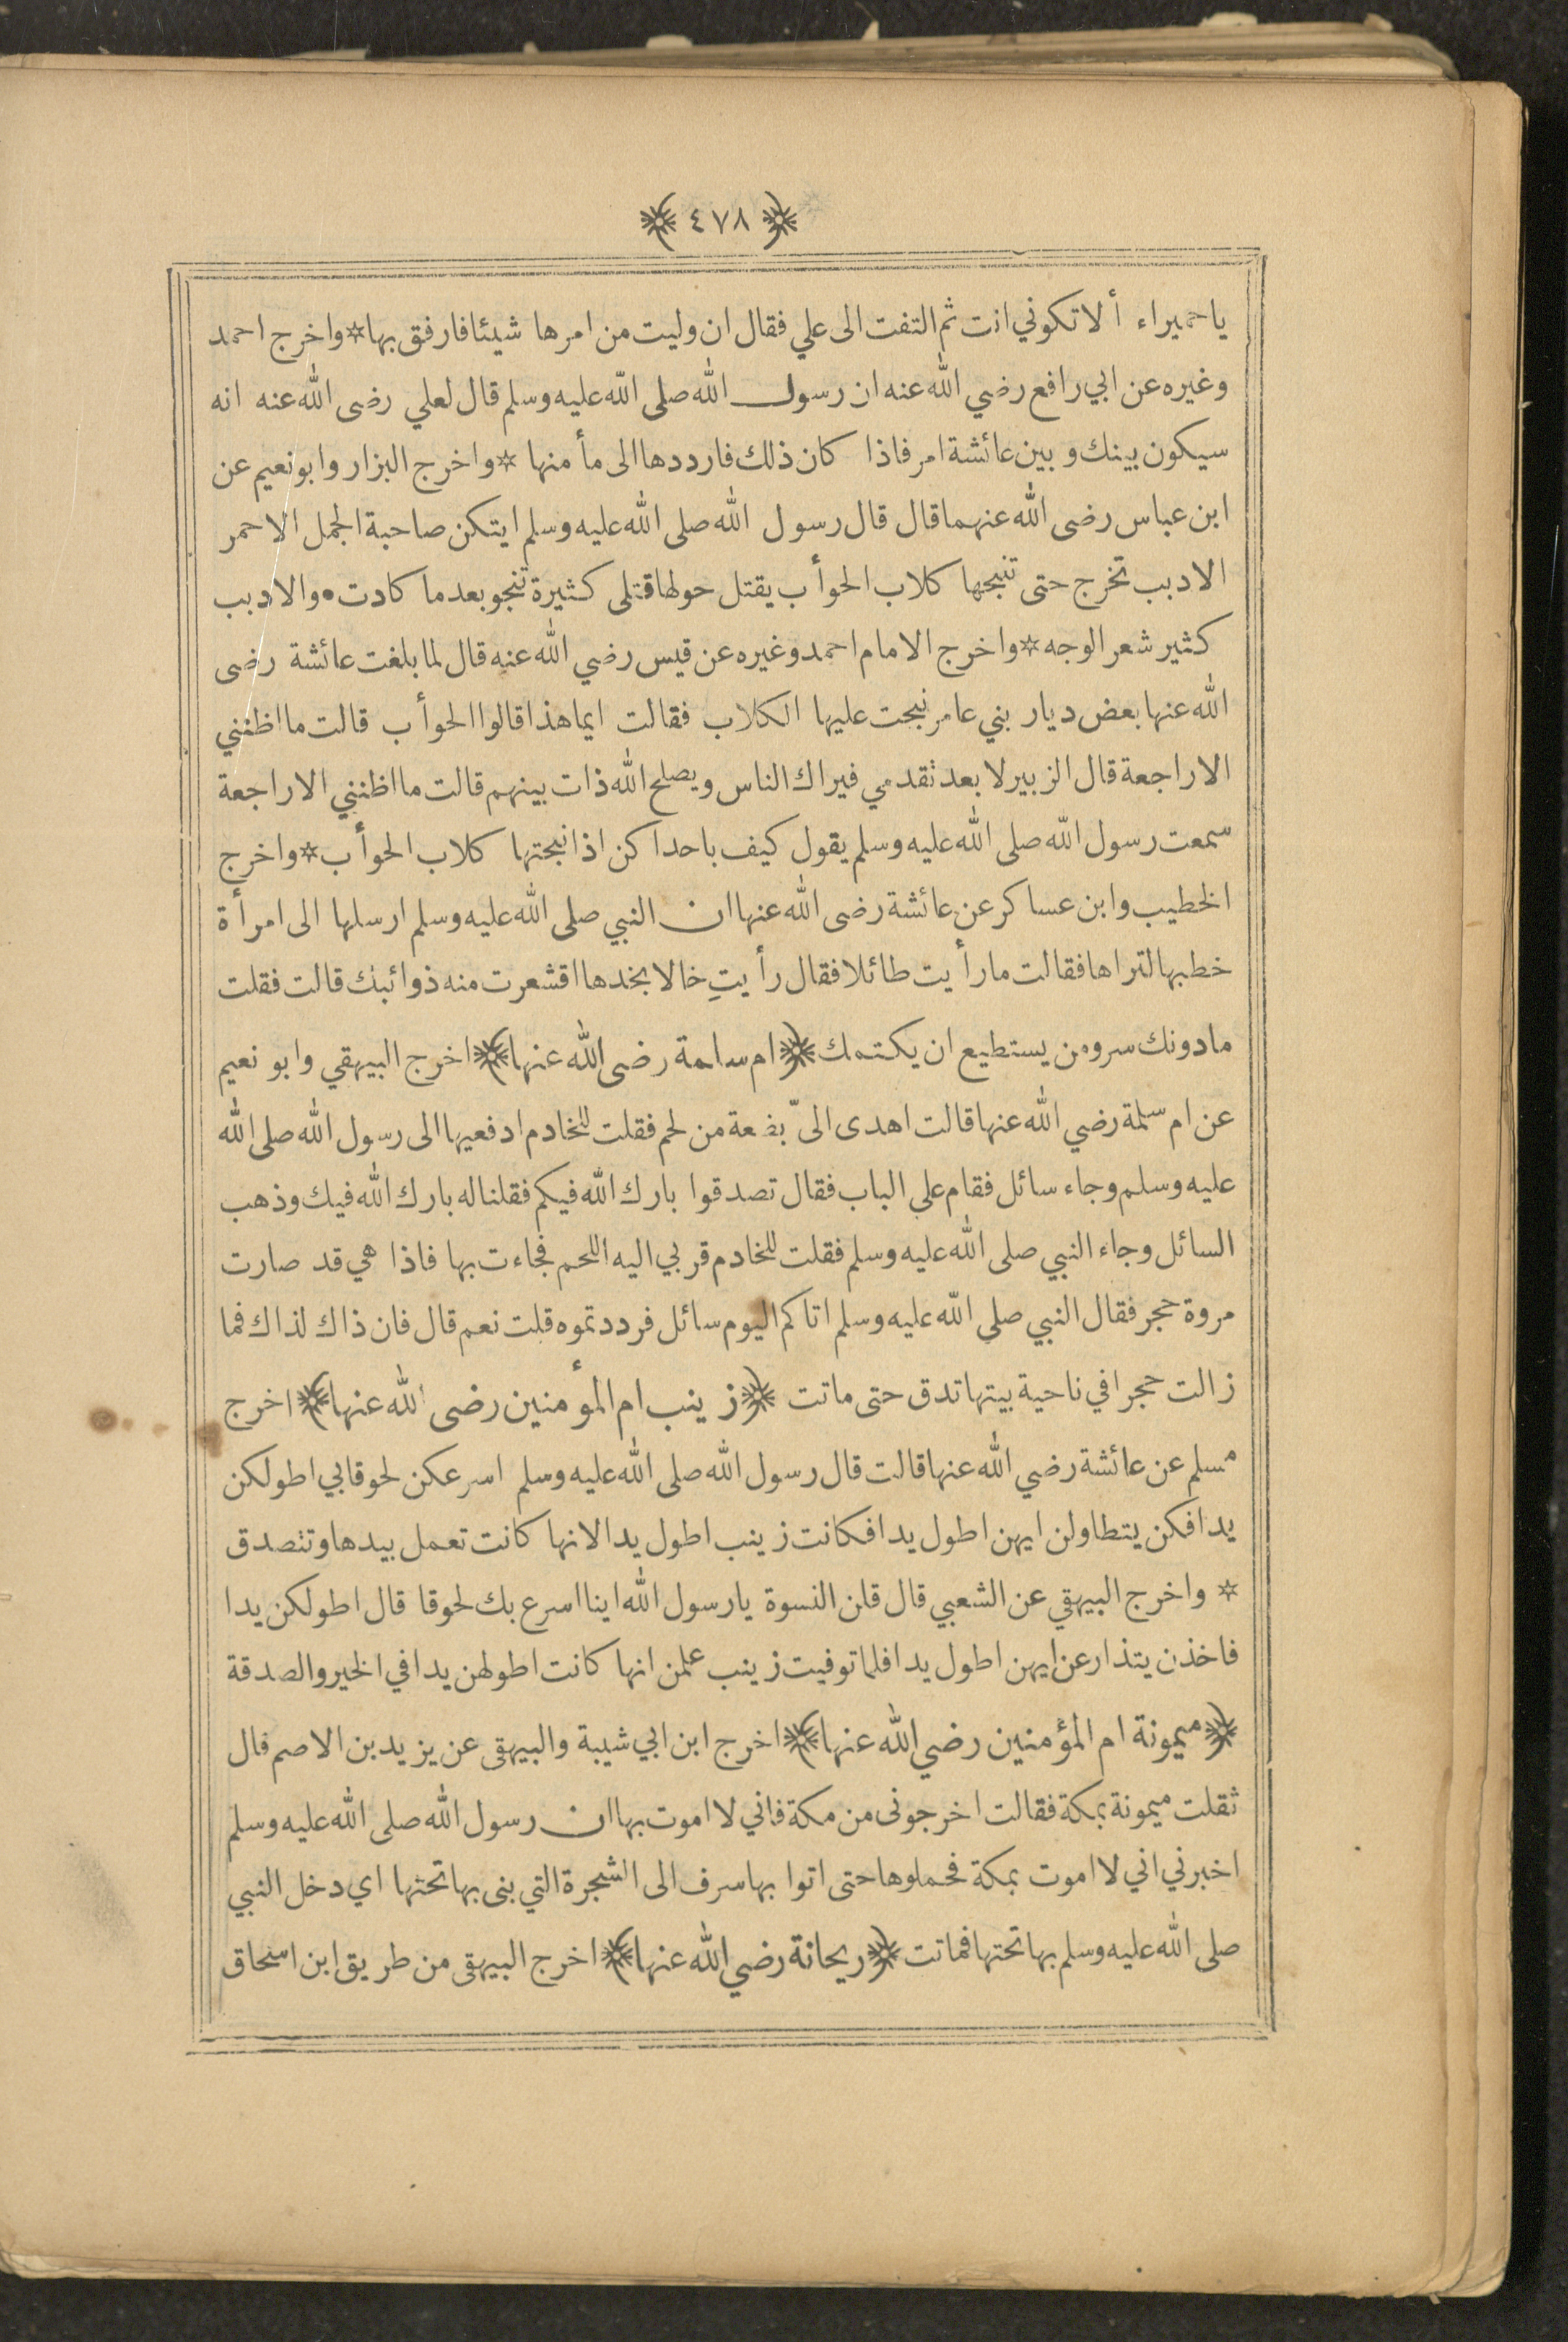 ﴿ ٤٧٨ ﴾
ياحميراء ألا تكوني انت ثم التفت الى علي فقال ان وليت من امرها شيئا فارفق بها * واخرج احمد
وغيره عن ابي رافع رضي الله عنه ان رسول الله صلى الله عليه وسلم قال لعلي رضى الله عنه انه
سيكون بينك وبين عائشة امر فاذا كان ذلك فارددها الى مأمنها * واخرج البزار وابو نعيم عن
ابن عباس رضى الله عنهما قال قال رسول الله صلى الله عليه وسلم ايتكن صاحبة الجمل الاحمر
الادبب تخرج حتى تنبحها كلاب الحوأب يقتل حولها قتلى كثيرة تنجو بعد ما كادت • والادبب
كثير شعر الوجه * واخرج الامام احمد وغيره عن قيس رضي الله عنه قال لما بلغت عائشة رضى
الله عنها بعض ديار بني عامر نبحت عليها الكلاب فقالت ايما هذا قالوا الحوأب قالت ما اظنني
الا راجعة قال الزبير لا بعد تقدمي فيراك الناس ويصلح الله ذات بينهم قالت ما اظنني الا راجعة
سمعت رسول الله صلى الله عليه وسلم يقول كيف باحداكن اذا نبحتها كلاب الحوأب * واخرج
الخطيب وابن عساكر عن عائشة رضى الله عنها ان النبي صلى الله عليه وسلم ارسلها الى امرأة
خطبها لتراها فقالت ما رأيت طائلا فقال رأيتِ خالا بخدها اقشعرت منه ذوائبك قالت فقلت
ما دونك سر ومن يستطيع ان يكتمك ﴿ ام سلمة رضى الله عنها ﴾ اخرج البيهقي وابو نعيم
عن ام سلمة رضي الله عنها قالت اهدى الىّ بضعة من لحم فقلت للخادم ادفعيها الى رسول الله صلى الله
عليه وسلم وجاء سائل فقام على الباب فقال تصدقوا بارك الله فيكم فقلنا له بارك الله فيك وذهب
السائل وجاء النبي صلى الله عليه وسلم فقلت للخادم قربي اليه اللحم فجاءت بها فاذا هي قد صارت
مروة حجر فقال النبي صلى الله عليه وسلم اتاكم اليوم سائل فرددتموه قلت نعم قال فان ذاك لذاك فما
زالت حجرا في ناحية بيتها تدق حتى ماتت ﴿ زينب ام المؤمنين رضى الله عنها ﴾ اخرج
مسلم عن عائشة رضي الله عنها قالت قال رسول الله صلى الله عليه وسلم اسرعكن لحوقا بي اطولكن
يدا فكن يتطاولن ايهن اطول يدا فكانت زينب اطول يدا لانها كانت تعمل بيدها وتتصدق
* واخرج البيهقي عن الشعبي قال قلن النسوة يا رسول الله اينا اسرع بك لحوقا قال اطولكن يدا
فاخذن يتذارعن ايهن اطول يدا فلما توفيت زينب علمن انها كانت اطولهن يدا في الخير والصدقة
﴿ ميمونة ام المؤمنين رضي الله عنها ﴾ اخرج ابن ابي شيبة والبيهقى عن يزيد بن الاصم قال
ثقلت ميمونة بمكة فقالت اخرجونى من مكة فاني لا اموت بها ان رسول الله صلى الله عليه وسلم
اخبرني اني لا اموت بمكة فحملوها حتى اتوا بها سرف الى الشجرة التي بنى بها تحتها اي دخل النبي
صلى الله عليه وسلم بها تحتها فماتت ﴿ ريحانة رضي الله عنها ﴾ اخرج البيهقى من طريق ابن اسحاق